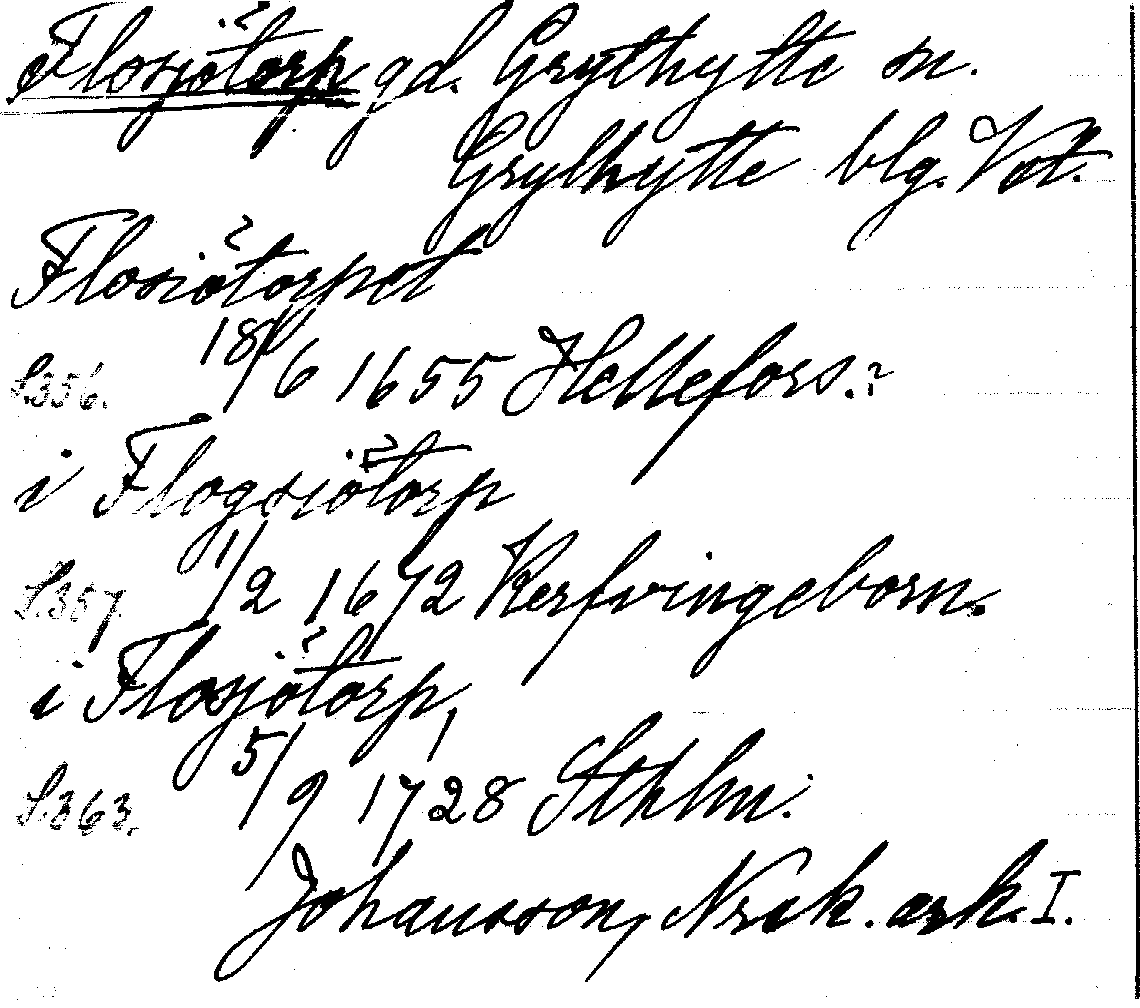 Flosjötorp gd. Grythytte sn.
Grythytte blg. Vstl.
Flosiötorpet
S.356. 18/6 1655 Hellefors.?
i Flogsiötorp
S.357. 1/2 1672 Kerfvingeborn.
i Flosjötorp,
S.363. 5/9 1728 Sthlm.
Johansson, Noraik. ark. I.